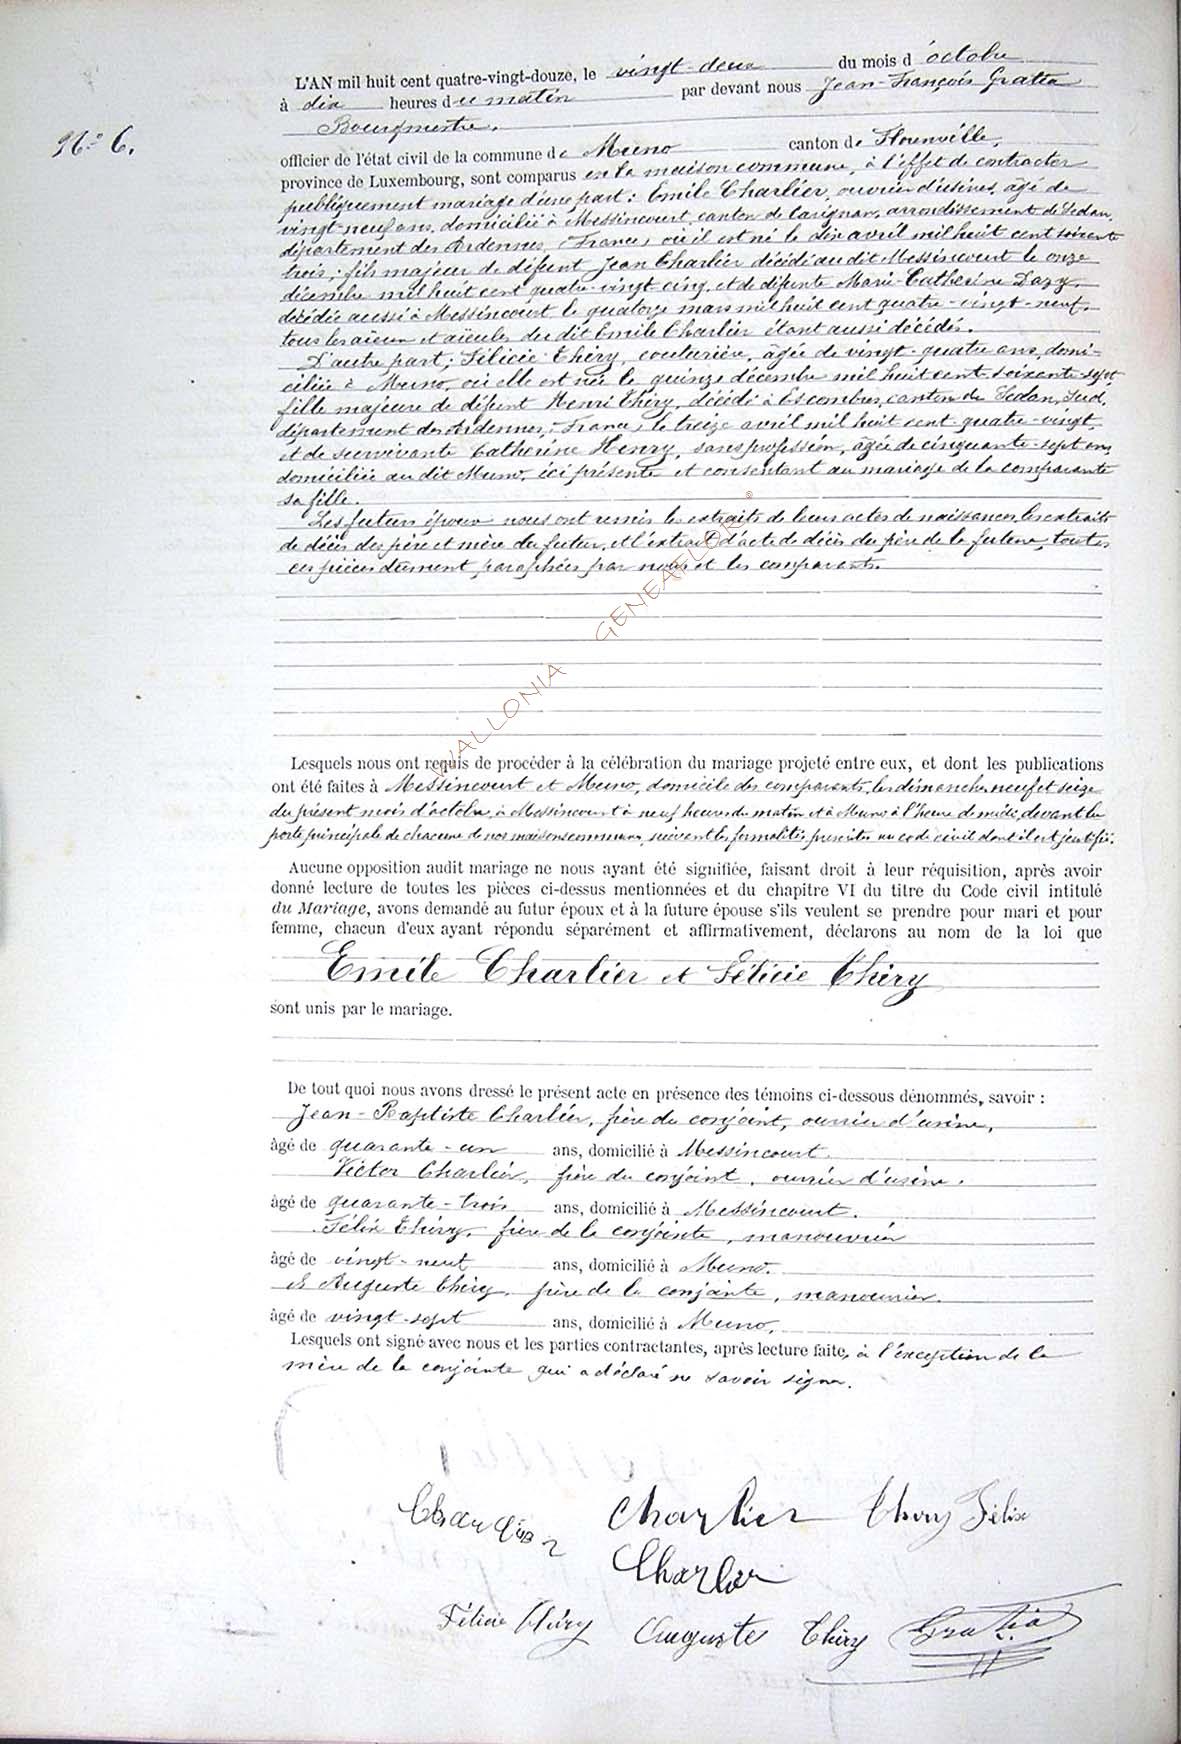 L'AN mil huit cent quatre-vingt-douze, le vingt-deux du mois d'octobre
à dix heures du matin par devant nous Jean-François Gratia
Bourgmestre,
N° 6.
officier de l'état civil de la commune de Muno canton de Florenville,
province de Luxembourg, sont comparus en la maison commune, à l'effet de contracter
publiquement mariage d'une part: Emile Charlier, ouvrier d'usines, âgé de
vingt-neuf ans, domicilié à Messincourt, canton de Carignan, arrondissement de Sedan,
département des Ardennes, (France) où il est né le dix avril mil huit cent soixante
trois; fils majeur de défunt Jean Charlier décédé au dit Messincourt le onze
décembre mil huit cent quatre-vingt cinq, et de défunte Marie-Catherine
décédée aussi à Messincourt le quatorze mars mil huit cent quatre-vingt-neuf,
tous les aïeux et aïeules du dit Emile Charlier étant aussi décédés.
D'autre part; Félicie Thiry, couturière, âgée de vingt-quatre ans, domi-
ciliée à Muno, où elle est née le quinze décembre mil huit cent soixante-sept
fille majeure de défunt Henri Thiry, décédé à Escombres, canton de Sedan, Sud,
département des Ardennes, (France) le treize avril mil huit cent quatre-vingt,
et de survivante Catherine Henry, sans profession, âgée de cinquante-sept ans,
domiciliée au dit Muno, ici présente et consentant au mariage de la comparante
sa fille.
Les futurs époux nous ont remis les extraits de leurs actes de naissances, les extraits
de décès des père et mère du futur, et l'extrait d'acte de décès du père de la future, toutes
ces pièces dûment paraphées par nous et les comparants.
WALLONIA GENEAFLOR®
Lesquels nous ont requis de procéder à la célébration du mariage projeté entre eux, et dont les publications
ont été faites à Messincourt et Muno, domicile des comparants, les dimanches neuf et seize
du présent mois d'octobre, à Messincourt à neuf heures du matin et à Muno à l'heure de midi, devant la
porte principale de chacune de nos maisons communes, suivant les formalités prescrites au code civil dont il est justifié.
Aucune opposition audit mariage ne nous ayant été signifiée, faisant droit à leur réquisition, après avoir
donné lecture de toutes les pièces ci-dessus mentionnées et du chapitre VI du titre du Code civil intitulé
du Mariage, avons demandé au futur époux et à la future épouse s'ils veulent se prendre pour mari et pour
femme, chacun d'eux ayant répondu séparément et affirmativement, déclarons au nom de la loi que
Emile Charlier et Félicie Thiry
sont unis par le mariage.
De tout quoi nous avons dressé le présent acte en présence des témoins ci-dessous dénommés, savoir :
Jean-Baptiste Charlier, frère du conjoint, ouvrier d'usine,
âgé de quarante-un ans, domicilié à Messincourt.
Victor Charlier, frère du conjoint, ouvrier d'usine.
âgé de quarante-trois ans, domicilié à Messincourt.
Félix Thiry, frère de la conjointe, manouvrier
âgé de vingt-neuf ans, domicilié à Muno.
et Auguste Thiry, frère de la conjointe, manouvrier.
âgé de vingt-sept ans, domicilié à Muno,
Lesquels ont signé avec nous et les parties contractantes, après lecture faite, à l'exception de la
mère de la conjointe qui a déclaré ne savoir signer.
Charlier Charlier Thiry Félix
Charlier
Félicie Thiry Auguste Thiry Gratia